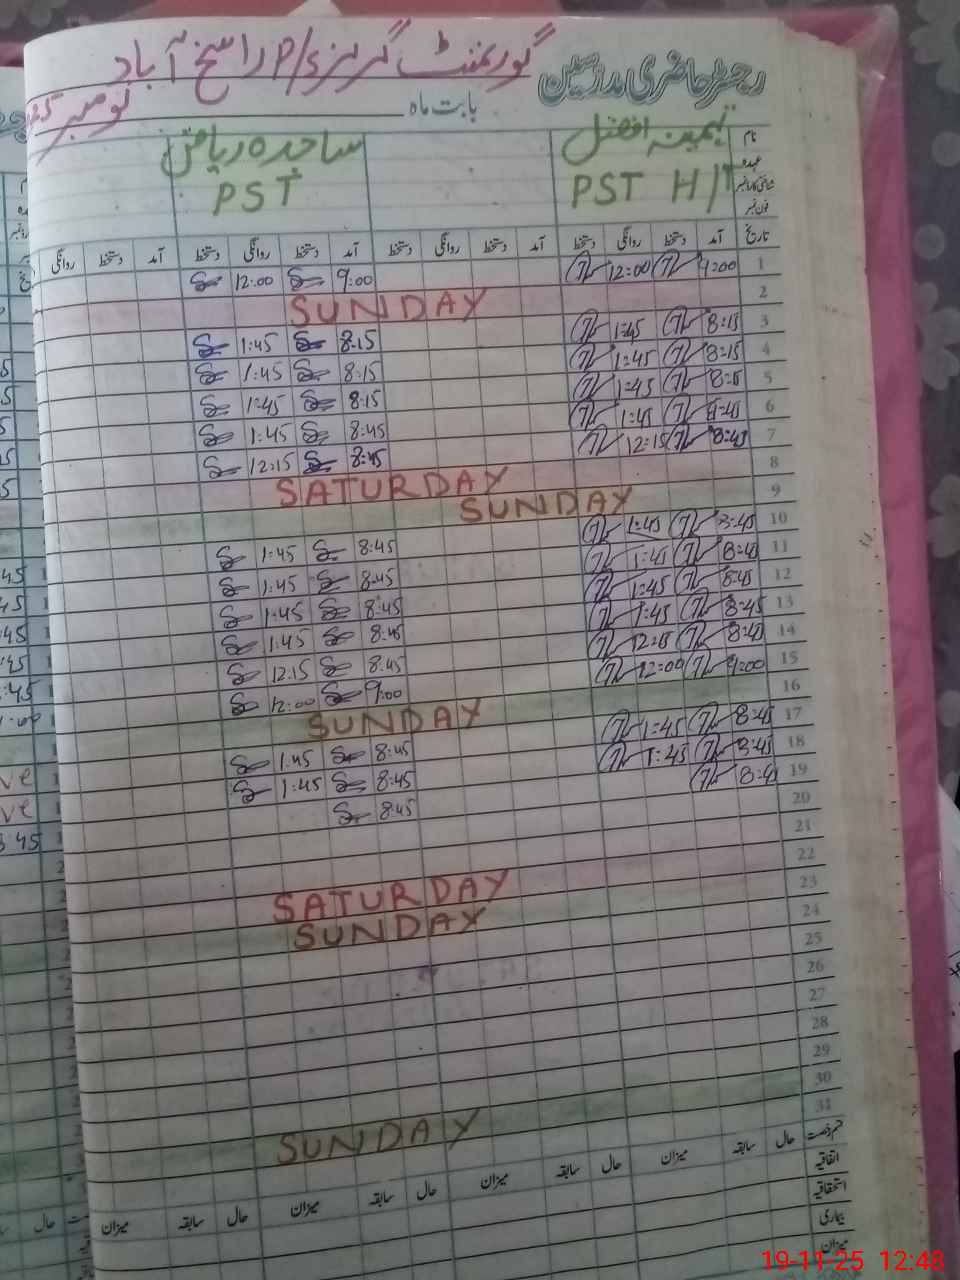 گورنمنٹ گرلز P/S راسخ آباد
رجسٹر حاضری مدرسین
بابت ماہ نومبر
نام
عہدہ
شناختی کارڈ نمبر
فون نمبر
ساجدہ ریاض
PST
PST H/T
تاریخ آمد دستخط روانگی دستخط آمد دستخط روانگی دستخط آمد دستخط روانگی دستخط آمد دستخط روانگی
1 9:00 12:00 9:00 12:00
2 SUNDAY
3 8:15 1:45 8:15 1:45
4 8:15 1:45 8:15 1:45
5 8:15 1:45 8:15 1:45
6 8:45 1:45 8:45 1:45
7 8:45 12:15 8:45 12:15
8 SATURDAY
9 SUNDAY
10 8:45 1:45 8:45 1:45
11 8:45 1:45 8:45 1:45
12 8:45 1:45 8:45 1:45
13 8:45 1:45 8:45 1:45
14 8:45 12:15 8:45 12:15
15 9:00 12:00 9:00 12:00
16 SUNDAY
17 8:45 1:45 8:45 1:45
18 8:45 1:45 8:45 1:45
19 8:45 8:45
20
21
22 SATURDAY
23 SUNDAY
24
25
26
27
28
29
30 SUNDAY
31
قسم رخصت حال سابقہ میزان حال سابقہ میزان حال سابقہ میزان حال سابقہ میزان حال
اتفاقیہ
استحقاقیہ
بیماری
میزان
19-11-25 12:48